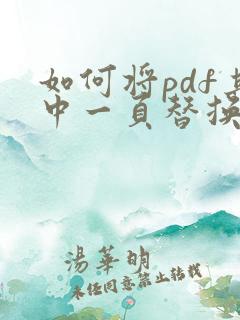 如何将pdf其
中一页替换
湯華明
未经同意禁止转载